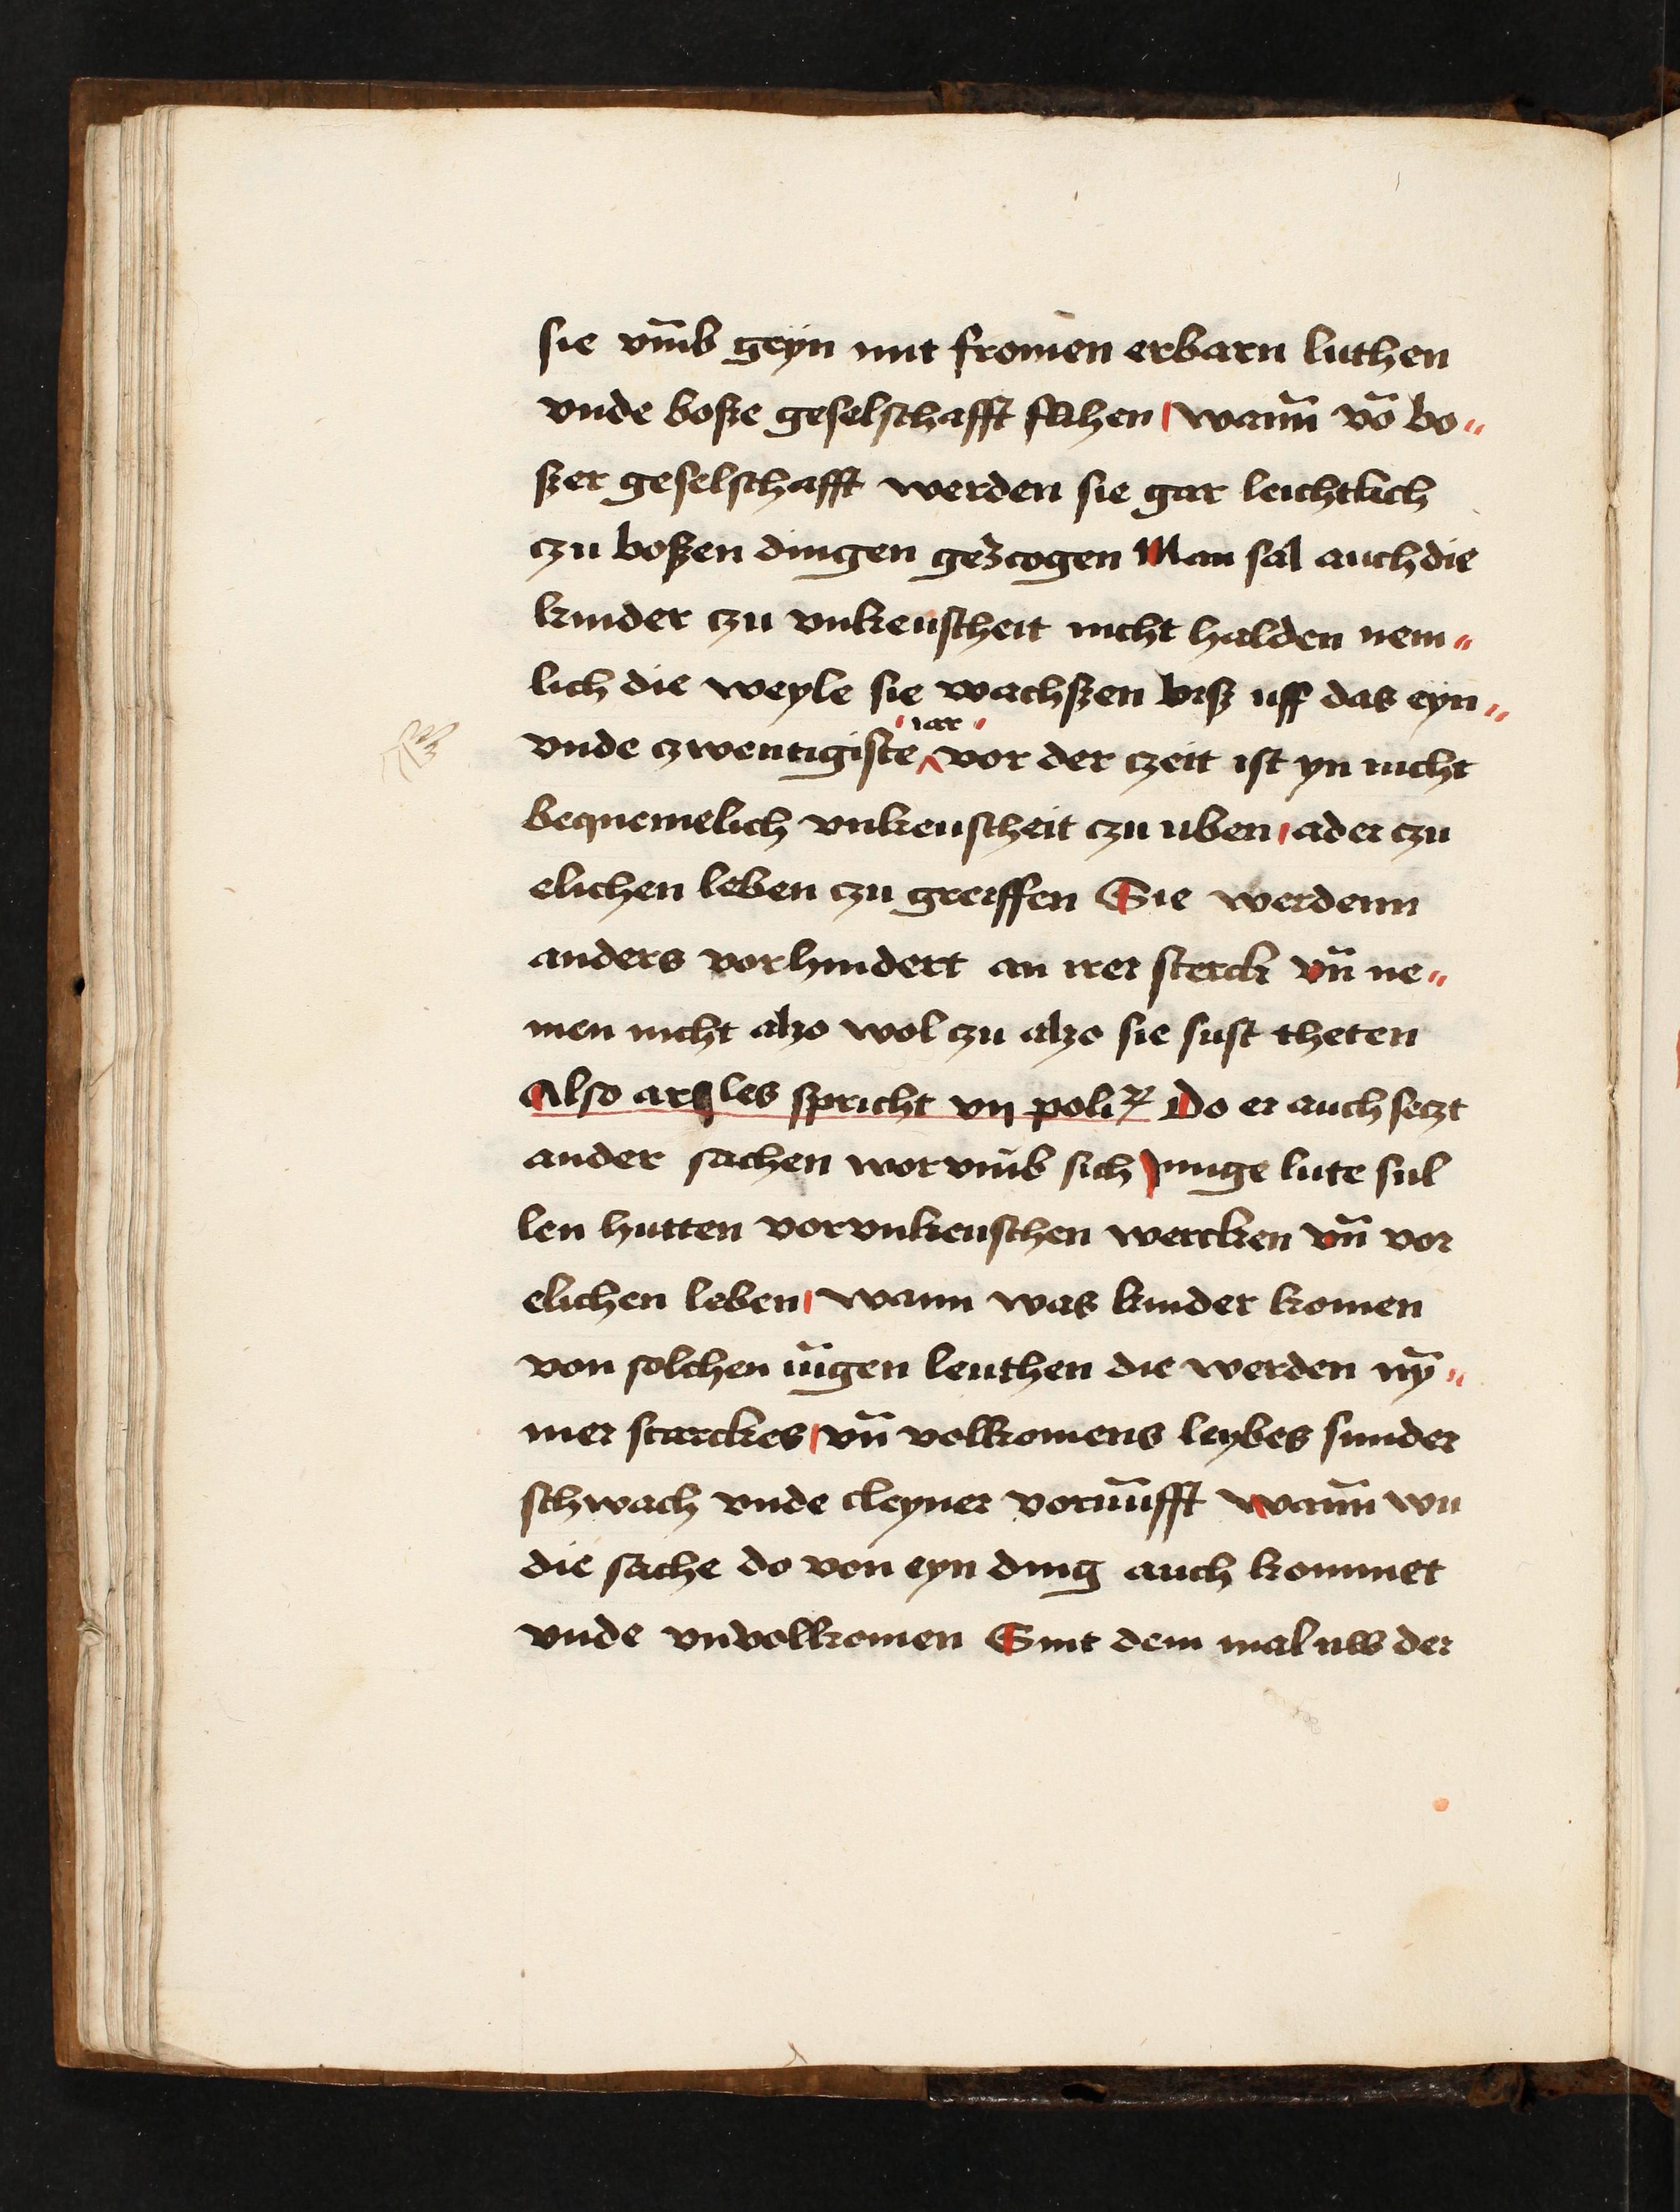 sie vm̄b geyn mit fromen̄ erbarn luthen
vnde boße geselschafft flihen | wann̄ vō bo〃
ßer geselschafft werden sie gar leichtlich
czu boßen dingen geʒcogen Man sal auch die
kinder czu vnkeuscheit nicht halden nem〃
lich die weyle sie wachßen biß uff das eyn〃
iar
vnde czwentigiste ‸ vor der czeit ist yn nicht
bequemelich vnkeuscheit czu uben | ader czu
elichen leben czu greiffen Sie werdenn
anders vorhindert an irer sterck vn̄ ne〃
men nicht alzo wol czu alzo sie sust theten
Also arles spricht vij poliꝝ Do er auch seczt
ander sachen wor vm̄b sich junge lute sul
len hutten vor vnkeuschen wercken vn̄ vor
elichen leben | wann was kinder komen
von solchen iūgen leuthen die werden nȳ〃
mer starckes | vn̄ volkomens leybes sunder
schwach vnde cleyner vornūfft wann̄ wu
die sache do von eyn ding auch kommet
vnde vnvolkomen Sint dem mal nw der